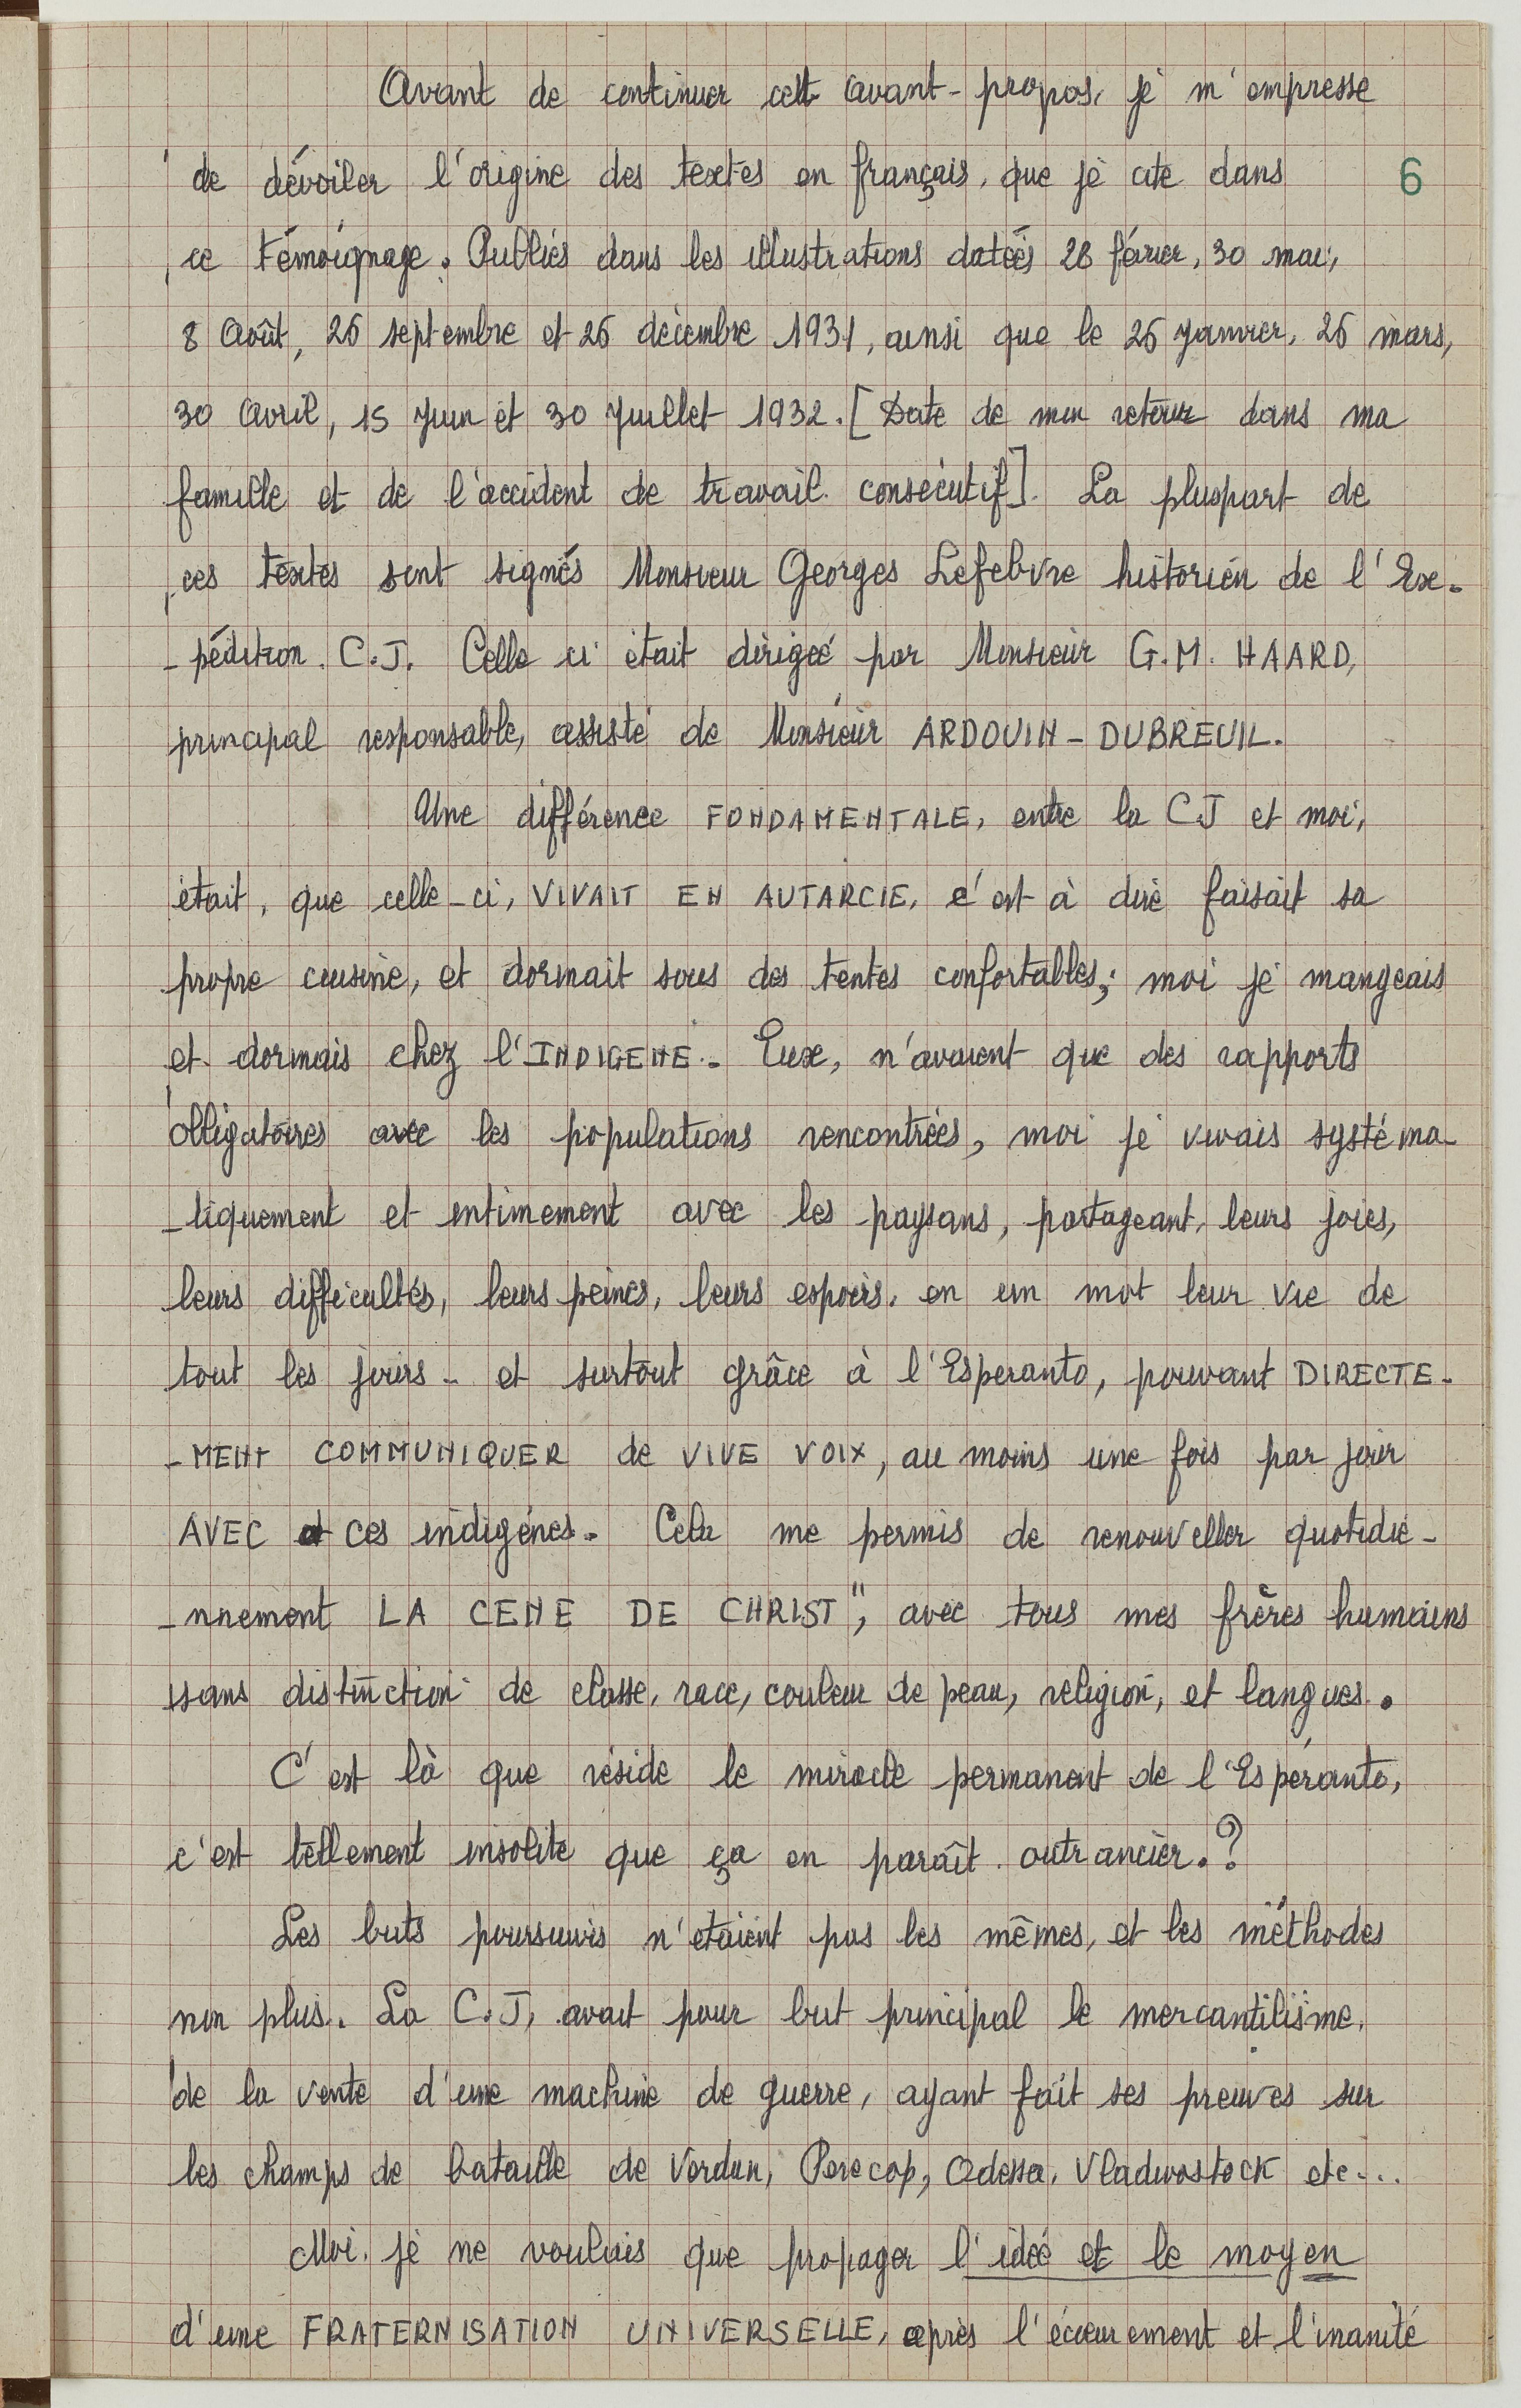 Avant de continuer cett avant-propos, je m'empresse
de dévoiler l'origine des textes en français, que je cite dans
6
ce témoignage. Publiés dans les illustrations datées 28 février, 30 mai,
8 Août, 26 septembre et 26 décembre 1931, ainsi que le 26 Janvier, 26 mars,
30 Avril, 15 Juin et 30 Juillet 1932. [Date de mon retour dans ma
famille et de l'accident de travail consécutif]. La pluspart de
ces textes sont signés Monsieur Georges Lefebvre historien de l'Ex-
-pédition C.J. Celle ci était dirigée par Monsieur G.M. HAARD,
principal responsable, assisté de Monsieur ARDOUIN-DUBREUIL.
Une différence FONDAMENTALE, entre la CJ et moi,
était, que celle-ci, VIVAIT EN AUTARCIE, c'est à dire faisait sa
propre cuisine, et dormait sous des tentes confortables; moi je mangeais
et dormais chez l'INDIGENE. Eux, n'avaient que des rapports
obligatoires avec les populations rencontrées, moi je vivais systéma-
-tiquement et intimement avec les paysans, partageant, leurs joies,
leurs difficultés, leurs peines, leurs espoirs, en un mot leur vie de
tout les jours - et surtout grâce à l'Esperanto, pouvant DIRECTE-
-MENT COMMUNIQUER de VIVE VOIX, au moins une fois par jour
AVEC ces indigénes. Cela me permis de renouveller quotidie-
-nnement LA CENE DE CHRIST", avec tous mes frères humains
sans distinction de classe, race, couleur de peau, religion, et langues.
C'est là que réside le miracle permanent de l'Espéranto,
c'est tellement insolite que ça en paraît outrancier.?
Les buts poursuivis n'etaient pas les mêmes, et les méthodes
non plus. La C.J, avait pour but principal le mercantilisme,
de la vente d'une machine de guerre, ayant fait ses preuves sur
les champs de bataille de Verdun, Perecop, Odessa, Vladivostock etc...
Moi, je ne voulais que propager l'idée et le moyen
d'une FRATERNISATION UNIVERSELLE, après l'écœurement et l'inanité